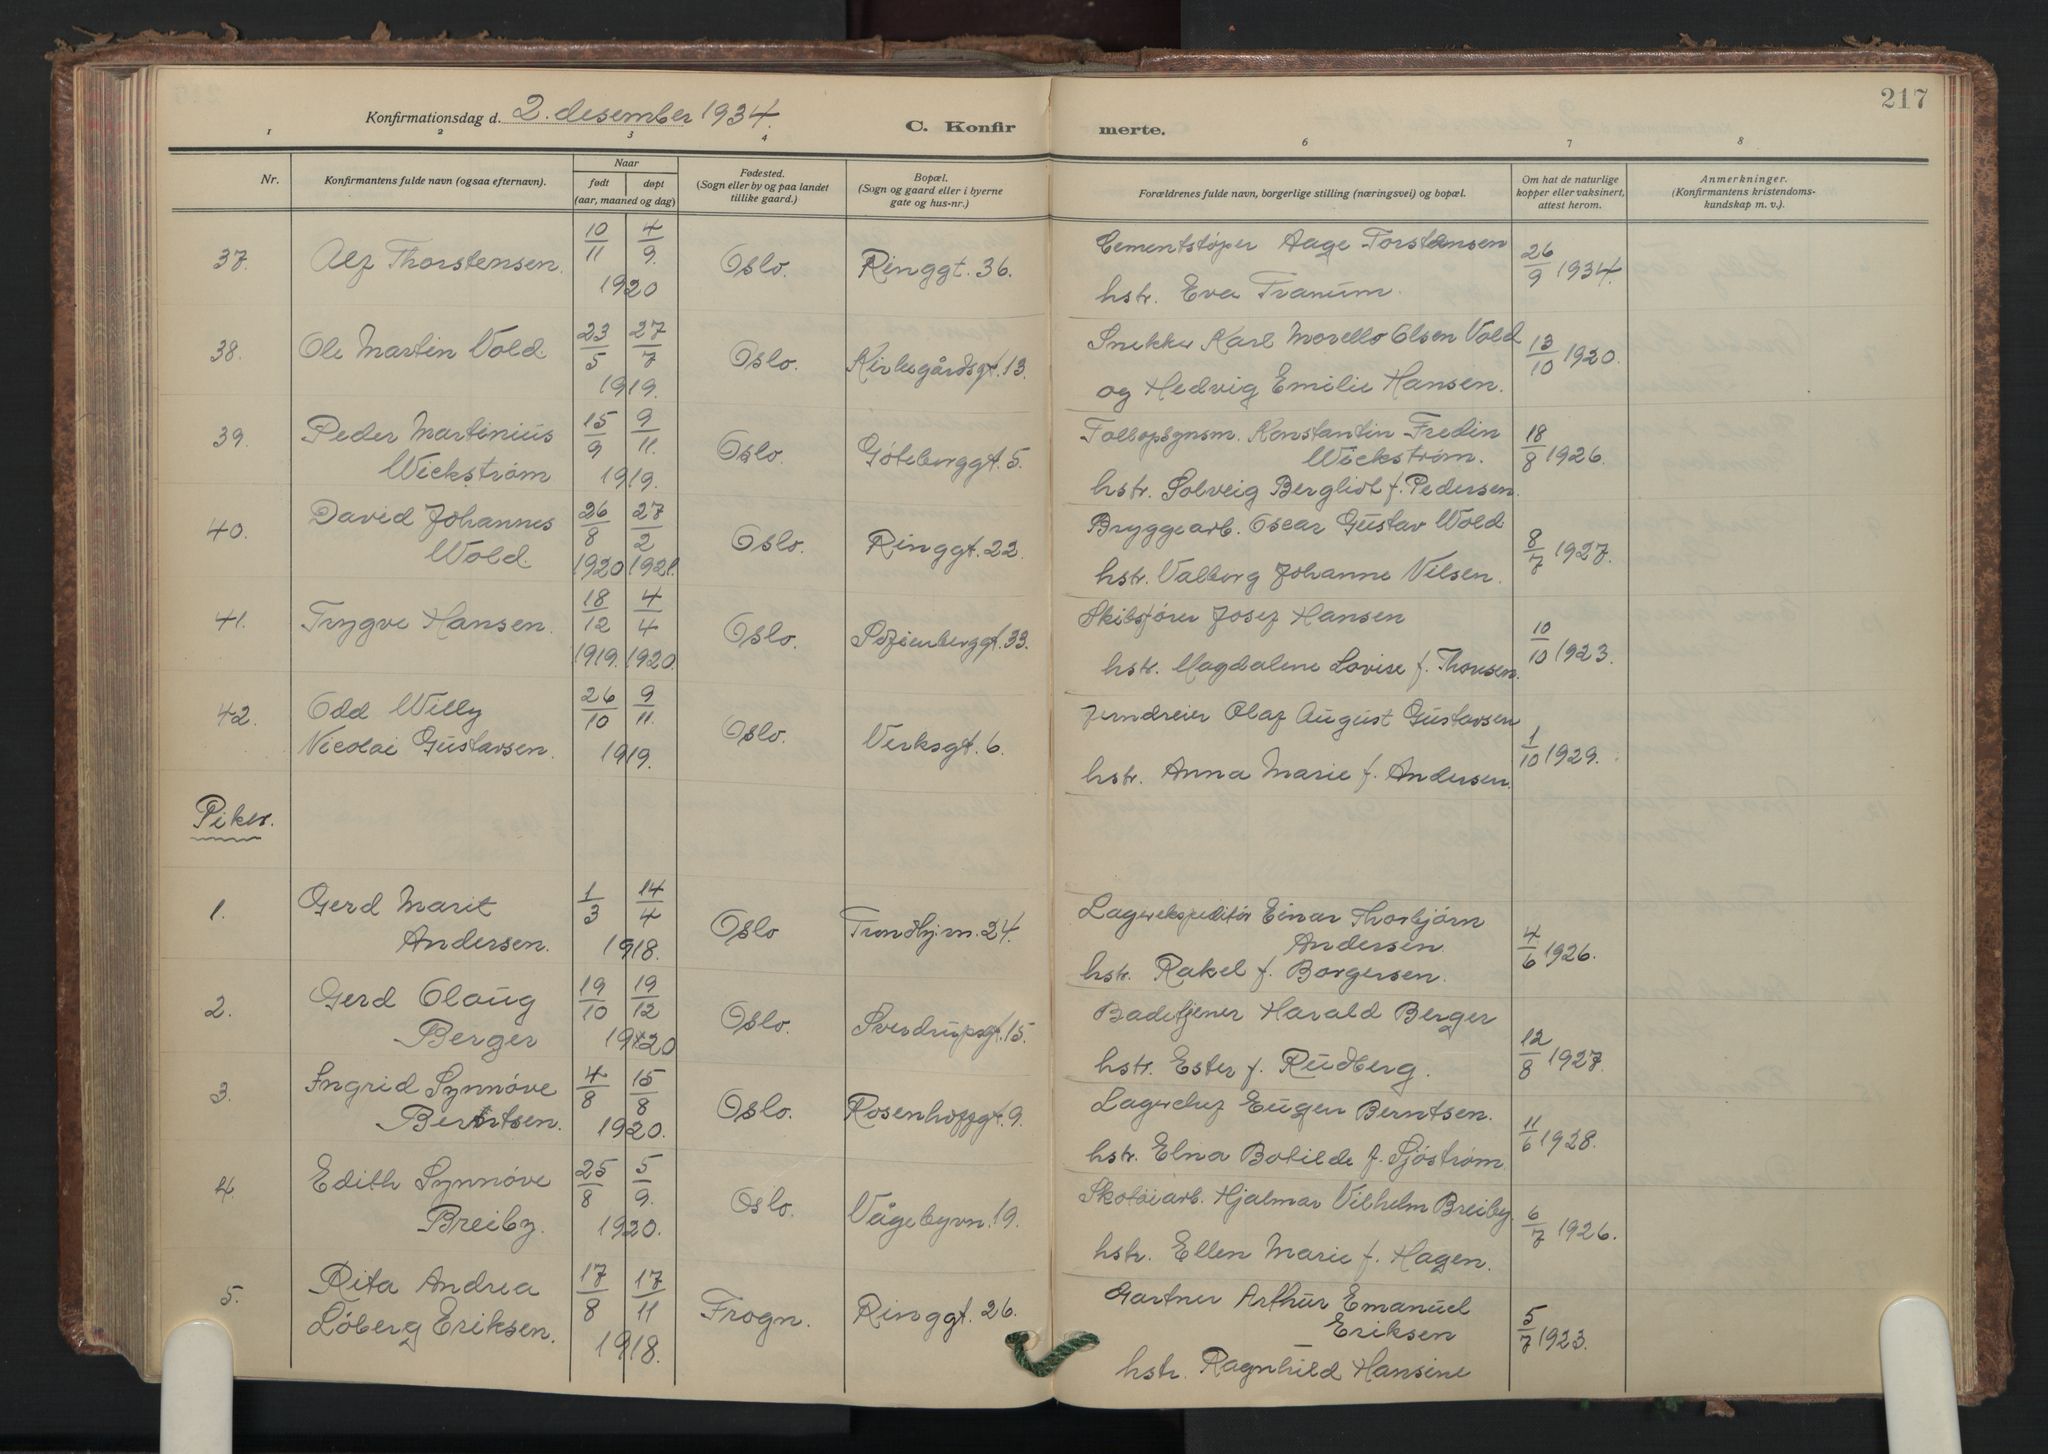 217
Konfirmationsdag d. 2. desember 1934.
C. Konfir merte.
1 2 3 4 6 7 8
Nr.
Konfirmantens fulde navn (ogsaa efternavn).
Naar
født døpt
(aar, maaned og dag)
Fødested.
(Sogn eller by og paa landet
tillike gaard.)
Bopæl.
(Sogn og gaard eller i byerne
gate og hus-nr.)
Forældrenes fulde navn, borgerlige stilling (næringsvei) og bopæl.
Om hat de naturlige
kopper eller vaksinert,
attest herom.
Anmerkninger.
(Konfirmantens kristendoms-
kundskap m. v.).
37. Alf Thorstensen. 10/11 4/9. 1920 Oslo. Ringgt. 36. Cementstøper Aage Torstensen
hstr. Eva Tranum. 26/9 1934.
38. Ole Martin Vold. 23/5 27/7 1919. Oslo. Kirkegårdsgt. 13. Snekker Karl Morello Olsen Vold
og Hedvig Emilie Hansen. 13/10 1920.
39. Peder Martinius
Wickstrøm 15/9 9/11. 1919. Oslo. Göteborggt. 5. Tollopsynsm. Konstantin Fredin
Wickstrøm.
hstr. Solveig Bergliot f. Pedersen. 18/8 1926.
40. David Johannes
Wold. 26/8 1920 27/2 1921. Oslo. Ringgt. 22. Bryggearb. Oscar Gustav Wold
hstr. Valborg Johanne Nilsen. 8/7 1927.
41. Trygve Hansen. 18/12 1919. 4/4 1920. Oslo. Sofienberggt. 33. Skibsfører Josef Hansen
hstr. Magdalene Lovise f. Thoresen. 10/10 1923.
42. Odd Willy
Nicolai Gustavsen. 26/10 9/11. 1919. Oslo. Verksgt. 6. Jerndreier Olaf August Gustavsen
hstr. Anna Marie f. Andersen. 1/10 1929.
Piker.
1. Gerd Marit
Andersen. 1/3 14/4 1918. Oslo Trondhj.vn. 24. Lagerekspeditör Einar Thorbjörn
Andersen
hstr. Rakel f. Borgersen. 4/6 1926.
2. Gerd Olaug
Berger 19/10 19/12 1920 Oslo. Sverdrupsgt. 15. Badetjener Harald Berger
hstr. Ester f. Rudberg. 12/8 1927.
3. Ingrid Synnöve
Berntsen. 4/8 15/8 1920. Oslo. Rosenhoffgt. 9. Lagerchef Eugen Berntsen.
hstr. Elna Botilde f. Sjöström. 11/6 1928.
4. Edith Synnöve
Breiby. 25/8 5/9. 1920. Oslo. Vågebyvn. 19. Skotöiarb. Hjalmar Vilhelm Breiby.
hstr. Ellen Marie f. Hagen. 6/7 1926.
5. Rita Andrea
Løberg Eriksen. 17/8 17/11 1918. Frogn. Ringgt. 26. Gartner Arthur Emanuel
Eriksen
hstr. Ragnhild Hansine 5/7 1923.